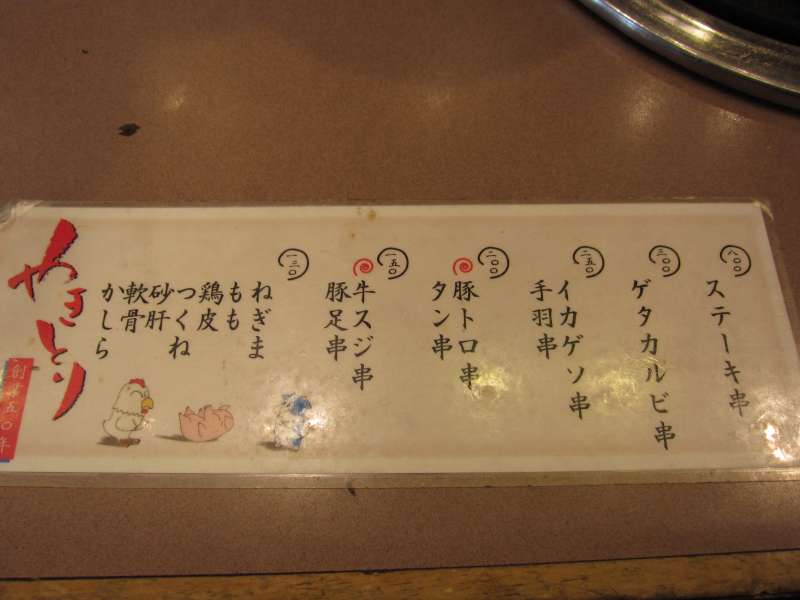 八〇〇
ステーキ串
三〇〇
ゲタカルビ串
二五〇
イカゲソ串
手羽串
二〇〇
豚トロ串
タン串
一五〇
牛スジ串
豚足串
一三〇
ねぎま
もも
鶏皮
つくね
砂肝
軟骨
かしら
やきとり
創業五〇年